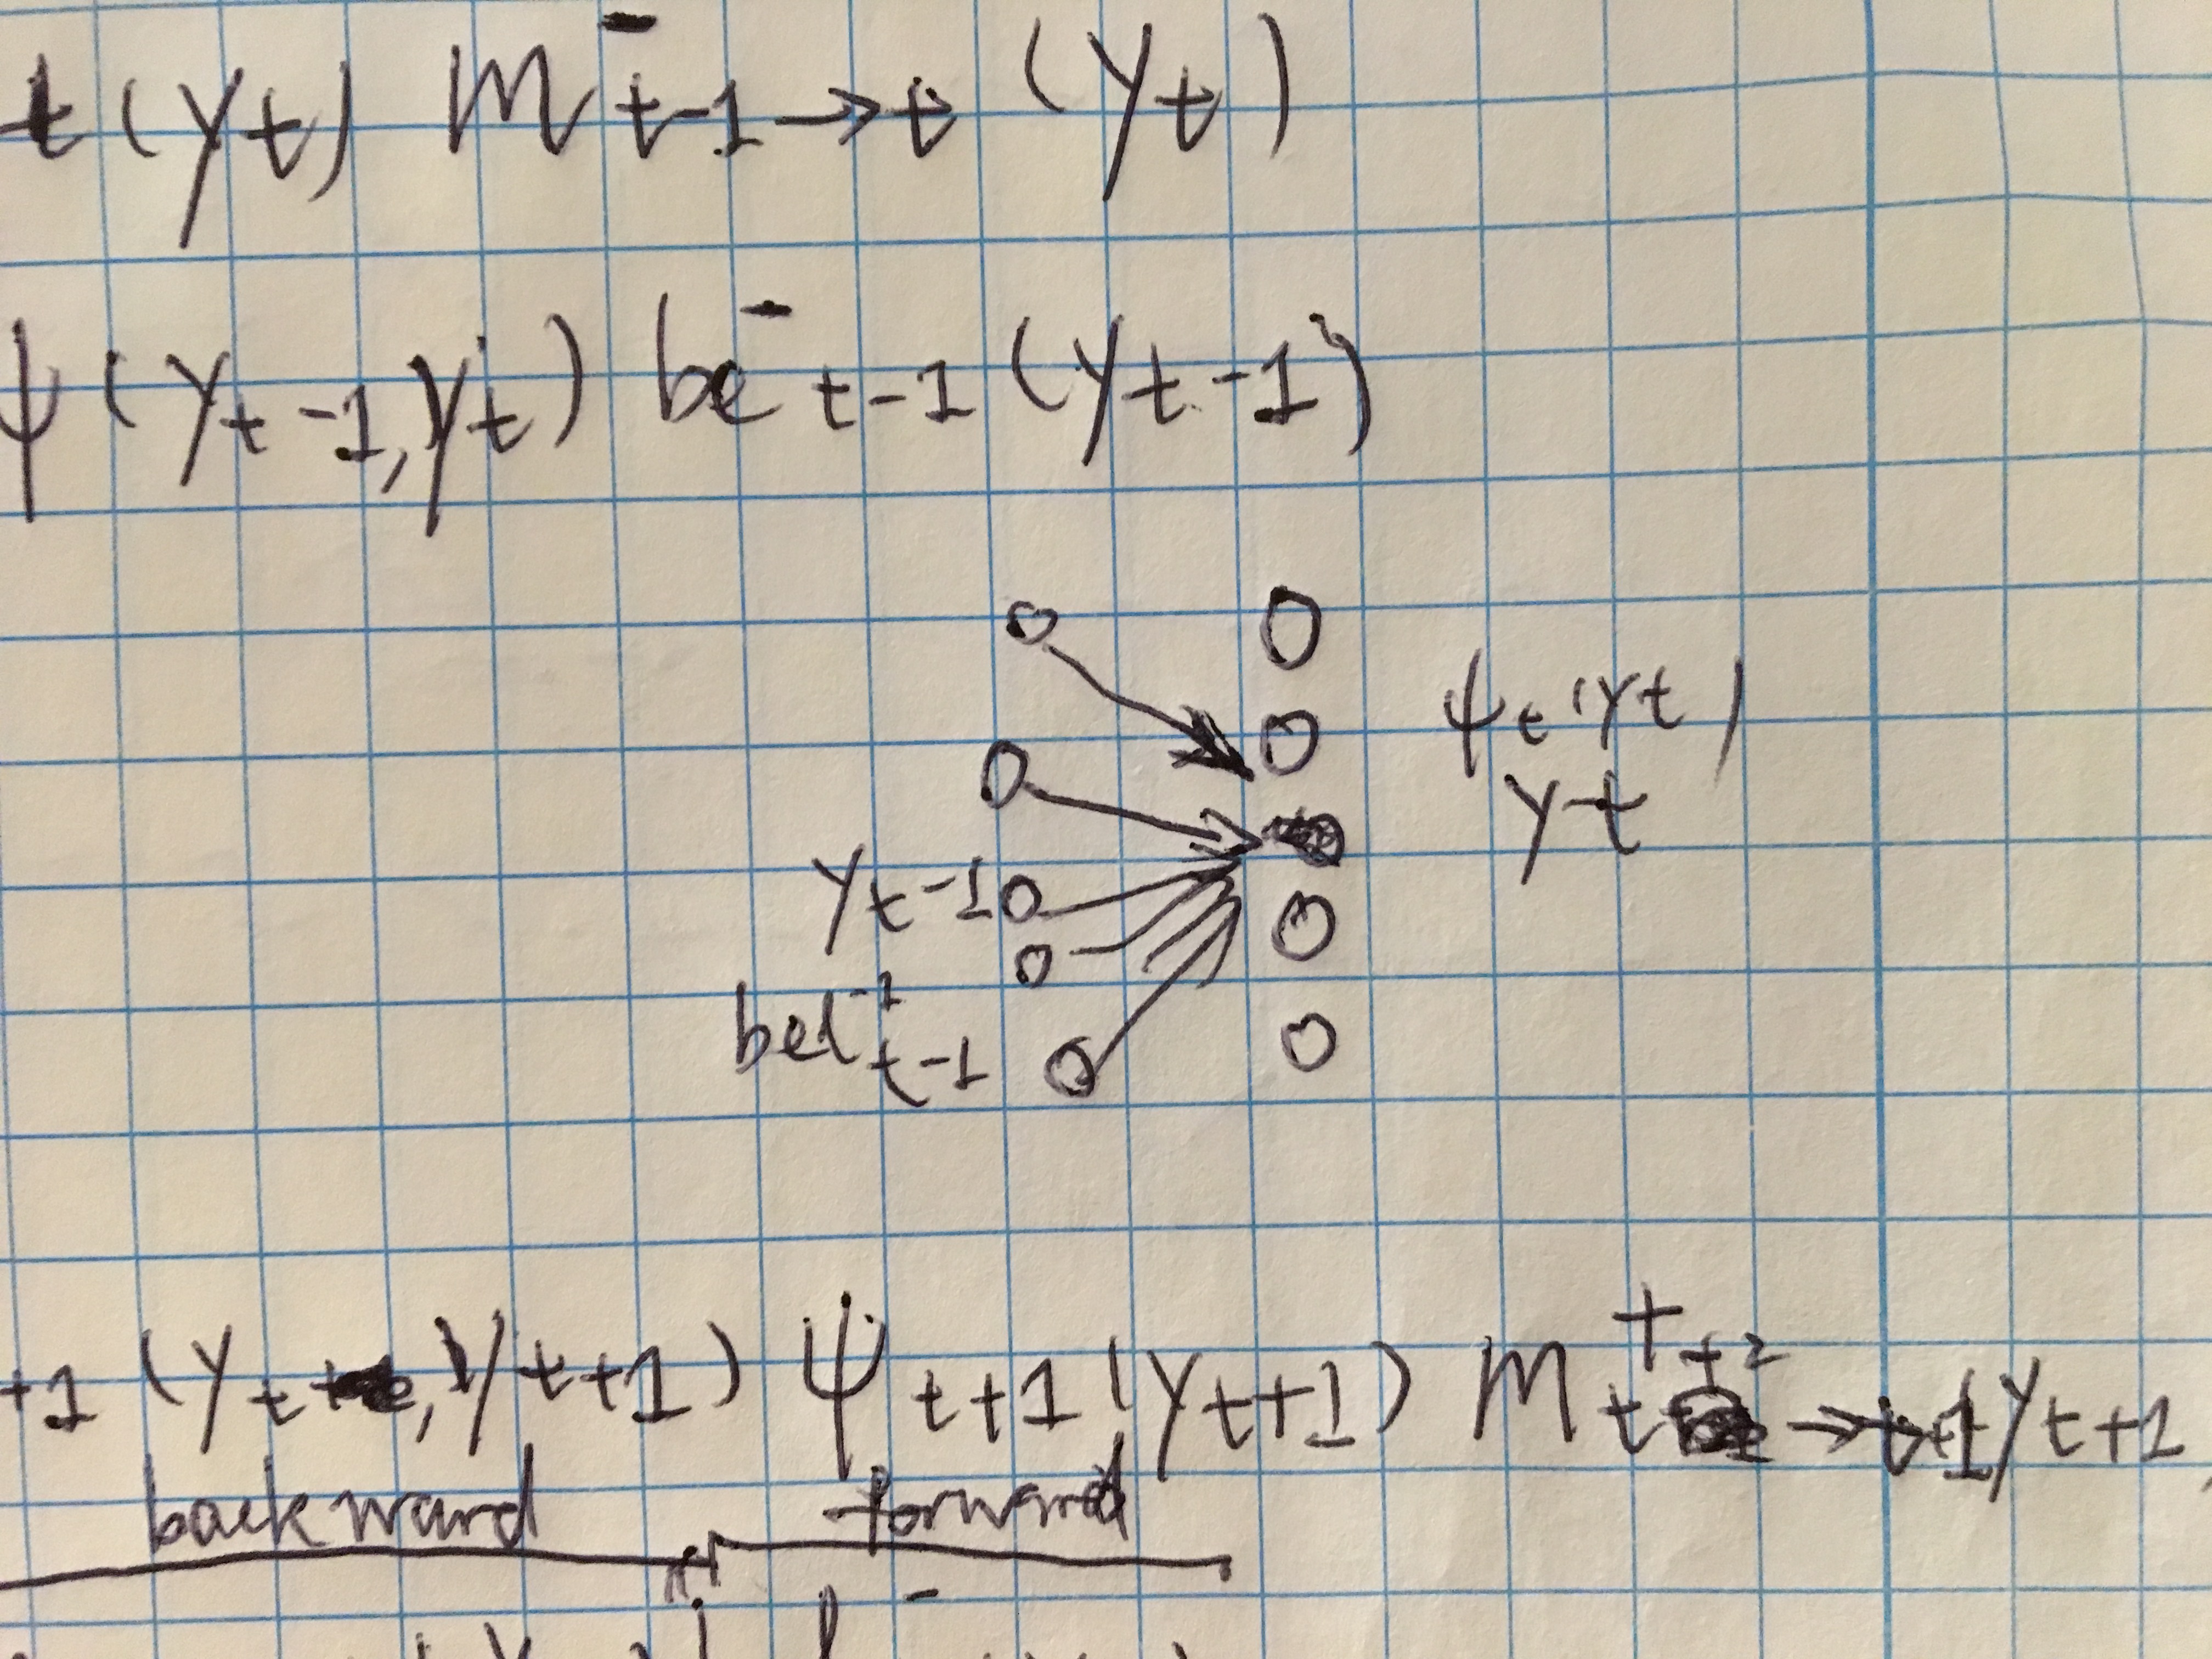 t(yt) m⁻t-1→t (yt)
ψ(yt-1, yt) be⁻ t-1(yt-1)
ψt(yt)
yt
yt-1
bel⁻t-1
+1 (yt, yt+1) ψt+1(yt+1) m⁺t+2→t+1 yt+1
backward forward